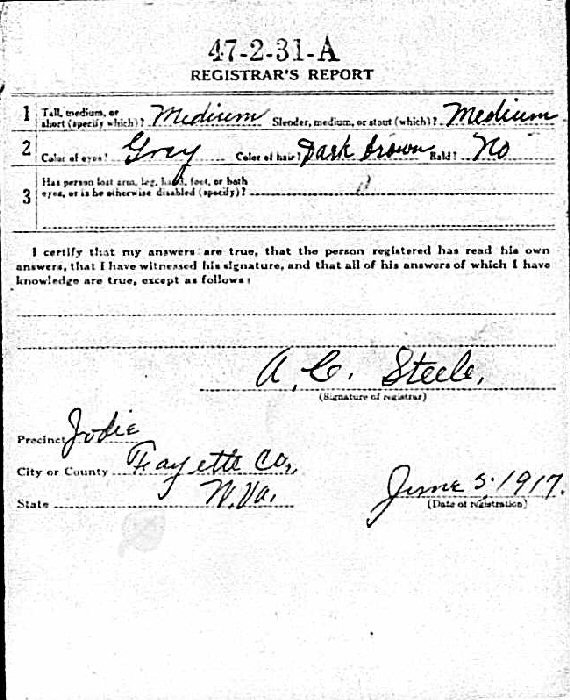 47-2-31-A
REGISTRAR'S REPORT
1 Tall, medium, or short (specify which)? Medium Slender, medium, or stout (which)? Medium
2 Color of eyes? Gray Color of hair? Dark brown Bald? No
3 Has person lost arm, leg, hand, foot, or both
eyes, or is he otherwise disabled (specify)?
I certify that my answers are true, that the person registered has read his own
answers, that I have witnessed his signature, and that all of his answers of which I have
knowledge are true, except as follows:
A. C. Steele,
(Signature of registrar)
Precinct Jodie
City or County Fayette Co,
State W. Va.
June 5, 1917.
(Date of registration)